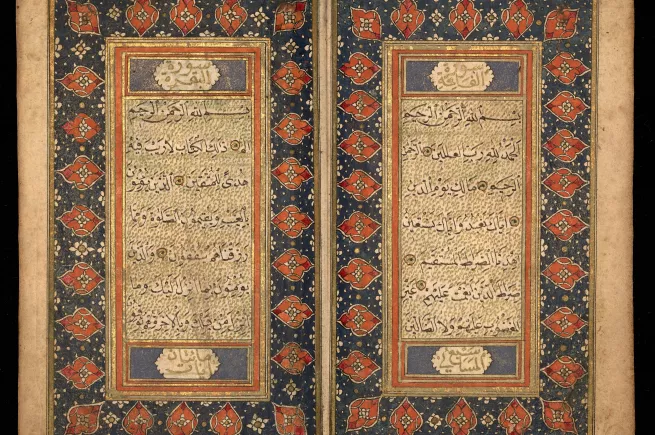 سورة
الفاتحة
بسم الله الرحمن الرحيم
الحمد لله رب العالمين الرحمن
الرحيم مالك يوم الدين
اياك نعبد واياك نستعين
اهدنا الصراط المستقيم
صراط الذين انعمت عليهم غير
المغضوب عليهم ولا الضالين
سورة
البقرة
بسم الله الرحمن الرحيم
الم ذلك الكتاب لا ريب فيه
هدى للمتقين الذين يؤمنون
بالغيب ويقيمون الصلوة ومما
رزقناهم ينفقون والذين
يؤمنون بما انزل اليك وما
انزل من قبلك وبالاخرة هم يوقنون
مائتان